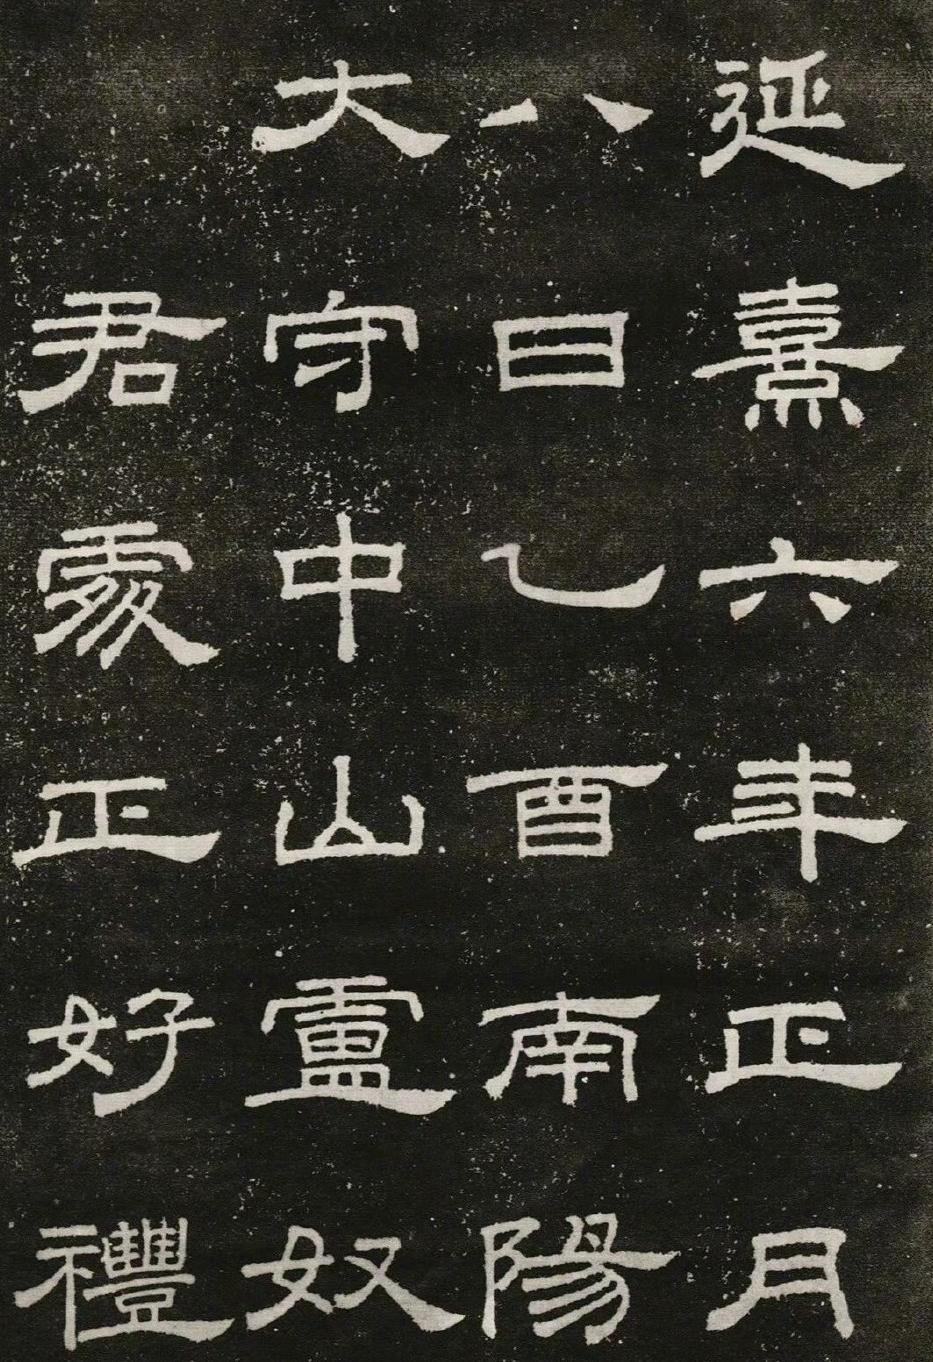 延熹六年正月
八日乙酉南陽
大守中山盧奴
君處正好禮